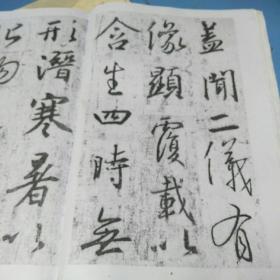 盖闻二儀有
像顯覆載以
含生四時無
形潛寒暑以